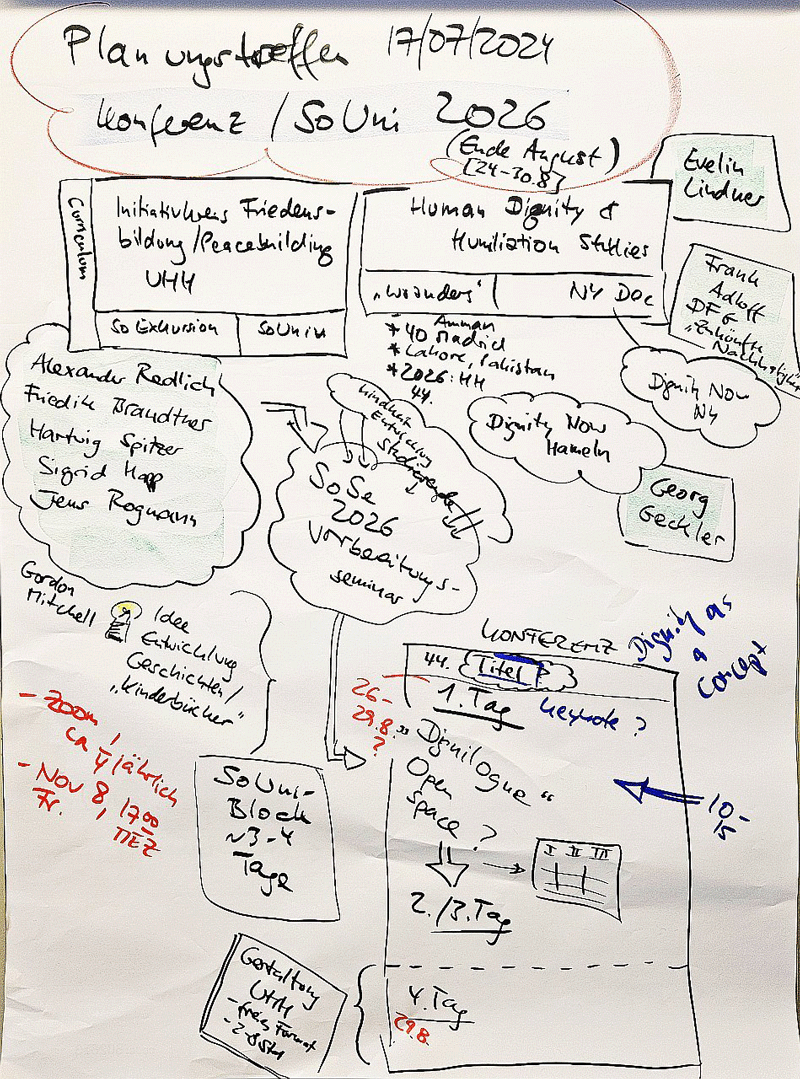 Planungstreffen 17/07/2024
Konferenz / SoUni 2026
(Ende August)
[24-30.8]
Evelin
Lindner
Curriculum
Initiativkreis Friedens-
bildung/Peacebuilding
UHH
SoExkursion
SoUni
Human Dignity &
Humiliation Studies
"woanders"
NY Dec
Frank
Adloff
DFG
"Zukünfte
Nachhaltigkeit
Amman
* 40 Madrid
* Lahore, Pakistan
* 2026: HH
44.
Dignity Now
NY
Dignity Now
Hameln
Alexander Redlich
Friederike Brandtner
Hartwig Spitzer
Sigrid Happ
Jens Rogmann
Kindheit
Entwicklung
Studierende
SoSe
2026
Vorbereitungs-
seminar
Georg
Geckler
Gordon
Mitchell
Idee
Entwicklung
Geschichten/
"Kinderbücher"
- zoom!
ca 4/jährlich
- Nov 8, 1700
Fr. MEZ
KONFERENZ
Dignity as
a
concept
44. Titel?
26-
29.8.
?
1. Tag keynote?
"Dignilogue"
Open
Space?
10-
15
I II III
2./3. Tag
SoUni-
Block
~3-4
Tage
Gestaltung
UHH
- freies Format
4. Tag
29.8.